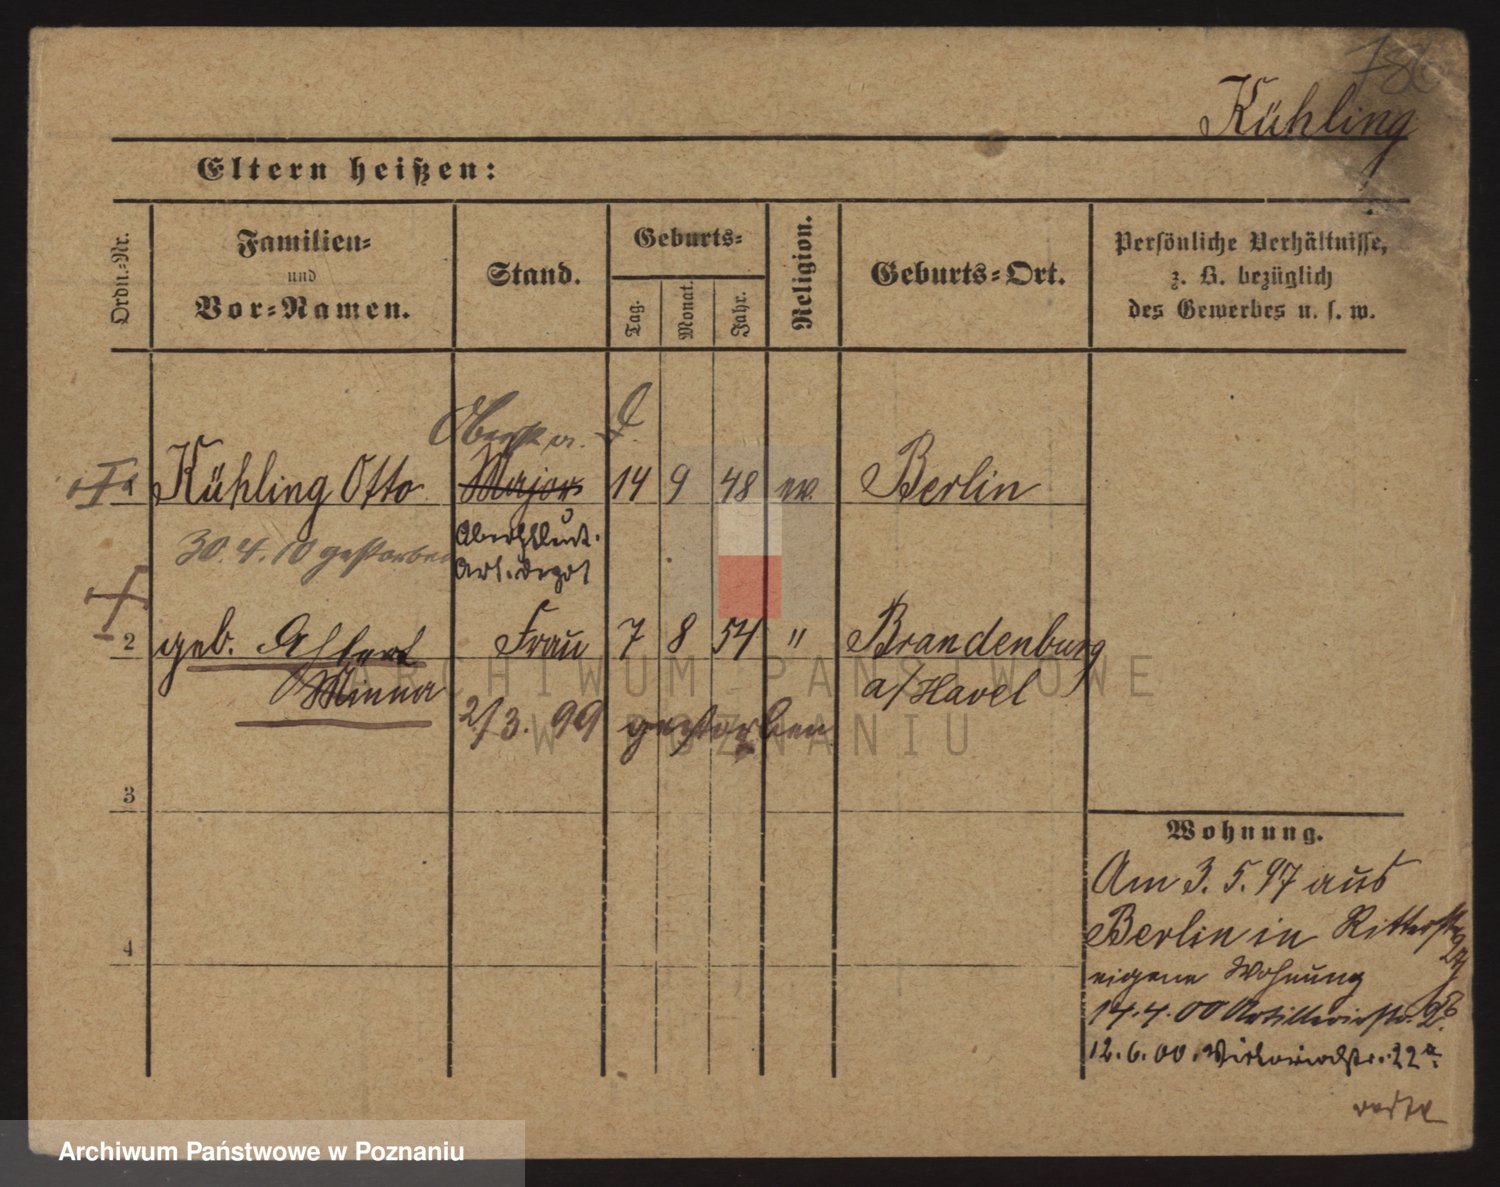 Kühling
Eltern heißen:
Ordn.-Nr.
Familien-
und
Vor-Namen.
Stand.
Geburts-
Tag.
Monat.
Jahr.
Religion.
Geburts-Ort.
Persönliche Verhältnisse,
z. B. bezüglich
des Gewerbes u. s. w.
Oberst a. D.
1 Kühling Otto Major 14 9 48 ev. Berlin
30.4.10 gestorben
Oberstleut.
Art. Depot
2 geb. Frau 7 8 54 " Brandenburg
Minna a/Havel
2/3. 99 gestorben
3
4
Wohnung.
Am 3. 5. 97 aus
Berlin in Ritterstr.
eigene Wohnung
14.4.00 Artilleriestr.
12.6.00. Victoriastr. 22a.
ARCHIWUM PAŃSTWOWE
W POZNANIU
Archiwum Państwowe w Poznaniu